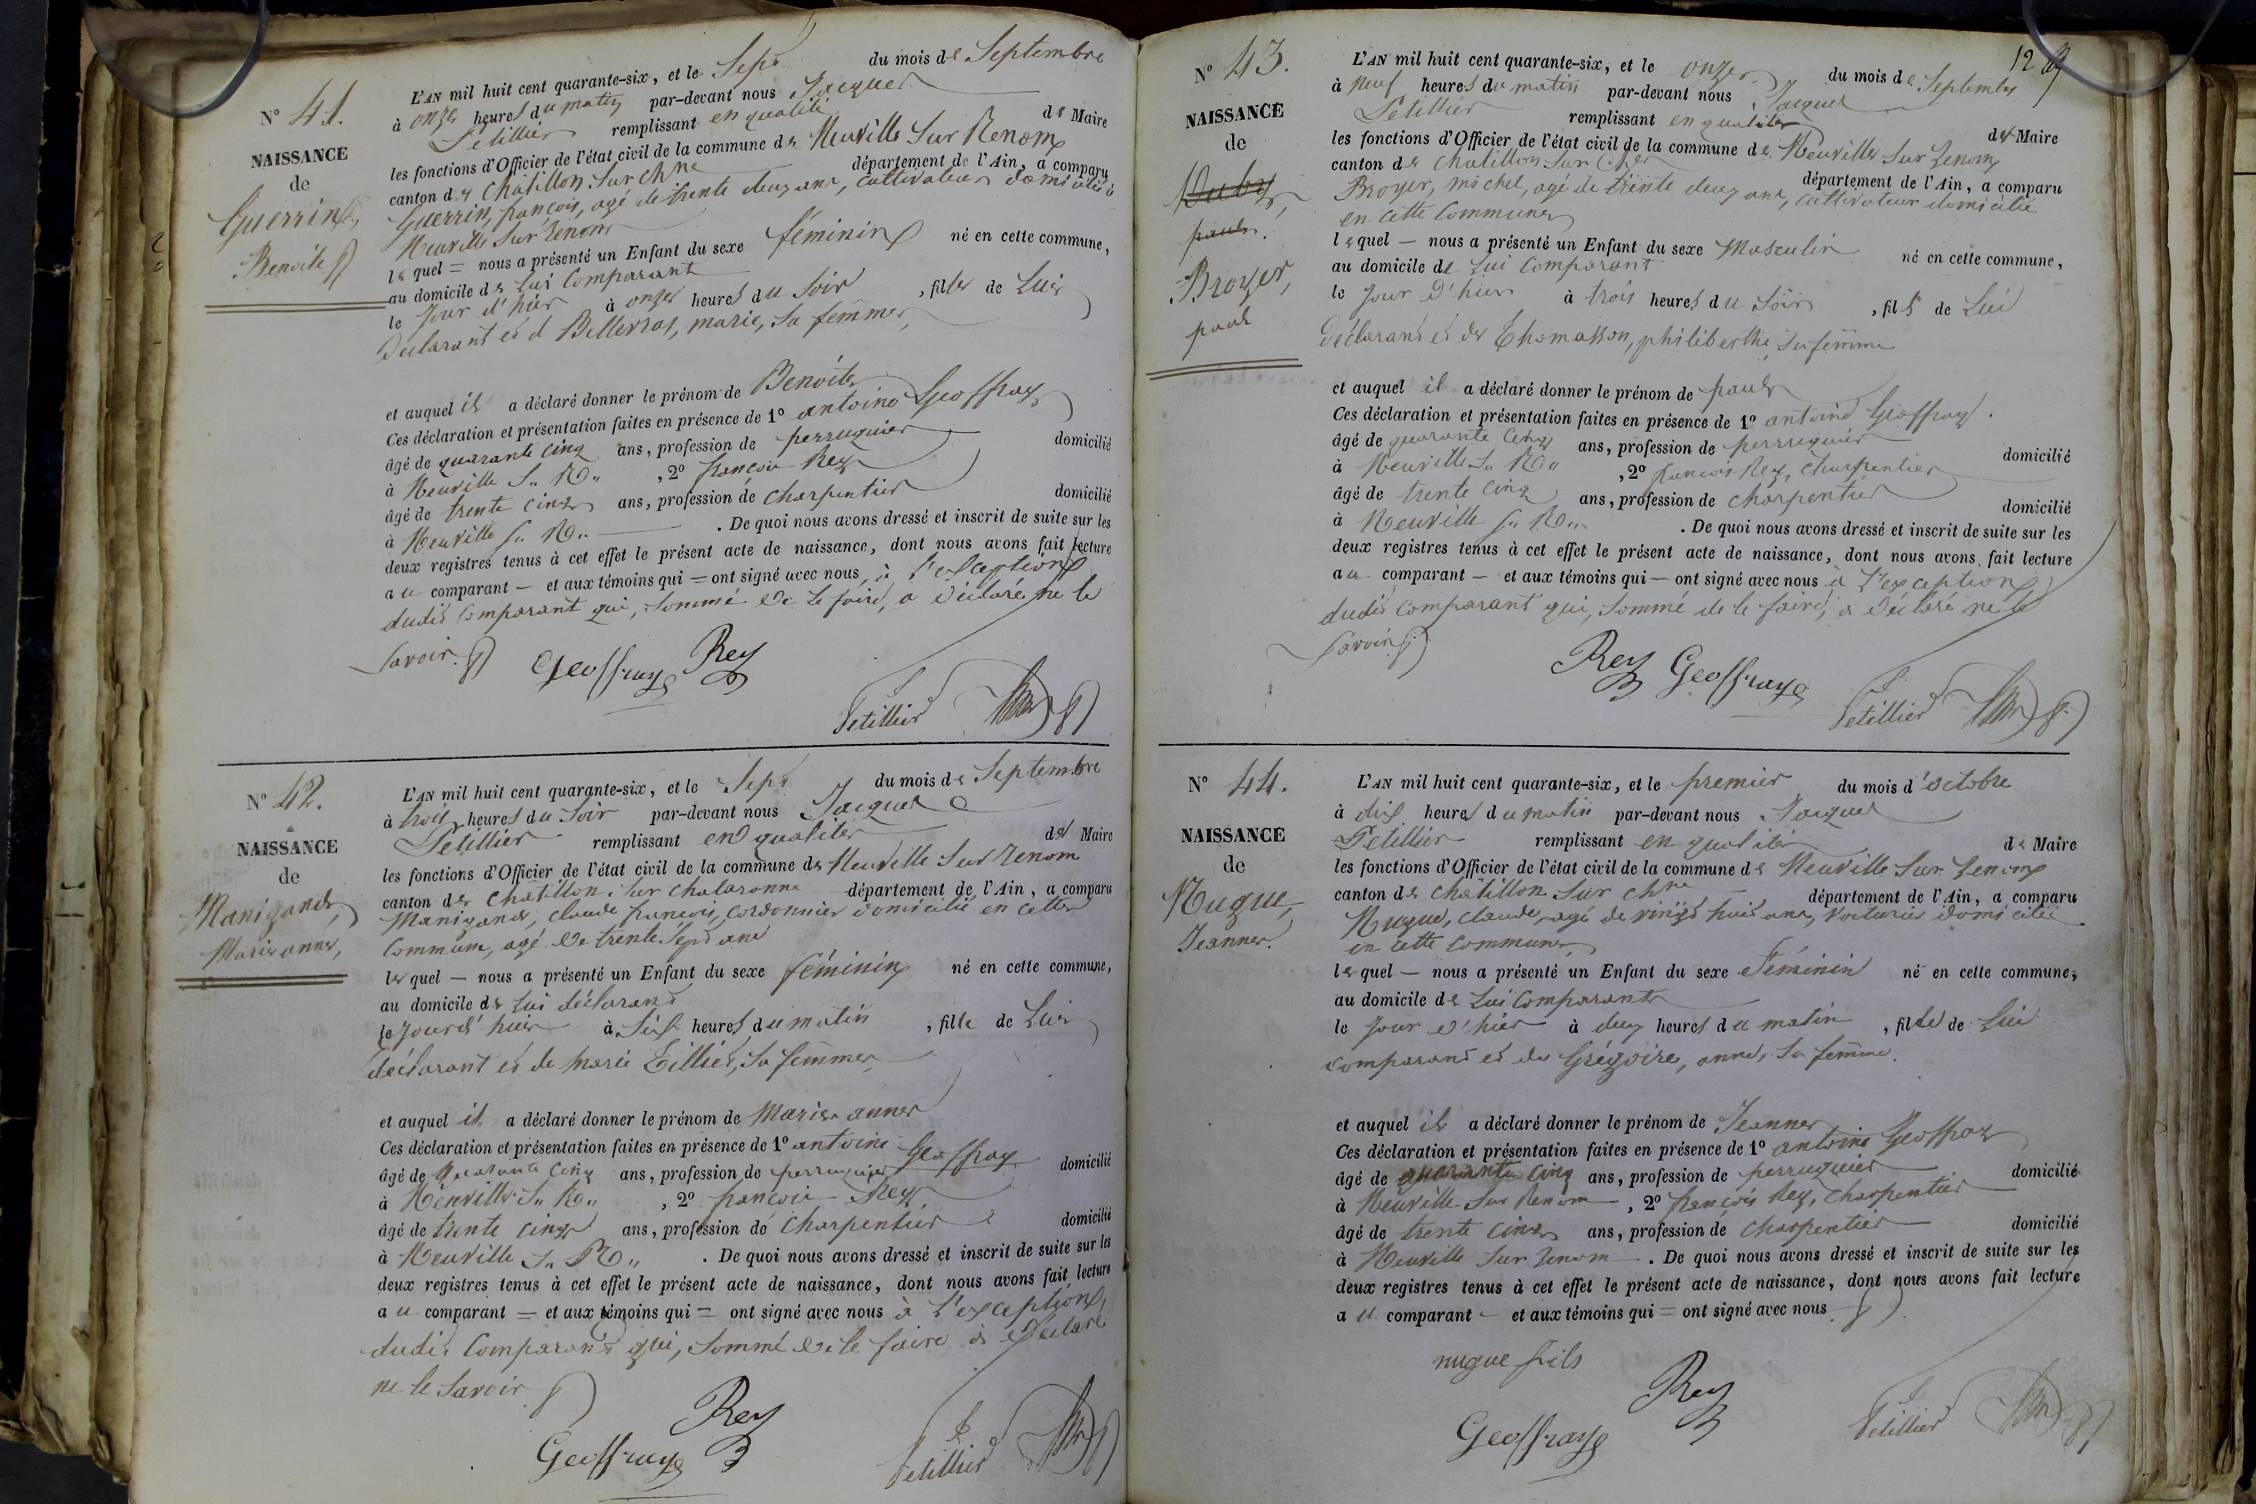 N° 41.
NAISSANCE
de
Guerrin,
Benoite
L'AN mil huit cent quarante-six, et le Sept du mois de Septembre
à onze heures du matin par-devant nous Jacques
Petillier remplissant en qualité de Maire
les fonctions d'Officier de l'état civil de la commune de Neuville Sur Renom
canton de Châtillon Sur Chne département de l'Ain, a comparu
Guerrin, françois, agé de trente deux ans, Cultivateur domicilié à
Neuville Sur Renom
lequel = nous a présenté un Enfant du sexe féminin né en cette commune,
au domicile de Lui Comparant
le Jour d'hier à onze heures du Soir, fille de Lui
Déclarant et d Billerras, marie, Sa femme,
et auquel il a déclaré donner le prénom de Benoite
Ces déclaration et présentation faites en présence de 1° antoine Geoffray
âgé de quarante cinq ans, profession de perruquier domicilié
à Neuville S.. R.., 2° françois Rey
âgé de trente cinq ans, profession de Charpentier domicilié
à Neuville S.. R.. . De quoi nous avons dressé et inscrit de suite sur les
deux registres tenus à cet effet le présent acte de naissance, dont nous avons fait lecture
au comparant — et aux témoins qui = ont signé avec nous, à l'exception
dudit Comparant qui, Sommé de le faire, a déclaré ne le
Savoir.
Geoffray Rey
Petillier
N° 42.
NAISSANCE
de
Manigand,
Marie anne,
L'AN mil huit cent quarante-six, et le Sept du mois de Septembre
à trois heures du Soir par-devant nous Jacques
Petillier remplissant en qualité de Maire
les fonctions d'Officier de l'état civil de la commune de Neuville Sur Renom
canton de Chatillon Sur Chalaronne département de l'Ain, a comparu
Manigand, Claude françois, Cordonnier domicilié en cette
Commune, agé de trente Sept ans
lequel — nous a présenté un Enfant du sexe féminin né en cette commune,
au domicile de Lui déclarant
le Jour d'hier à Six heures du matin, fille de Lui
déclarant et de Marie Tillier, Sa femme,
et auquel il a déclaré donner le prénom de Marie anne
Ces déclaration et présentation faites en présence de 1° antoine Geoffray
âgé de Quarante cinq ans, profession de perruquier domicilié
à Neuville S.. R.., 2° françois Rey
âgé de trente cinq ans, profession de Charpentier domicilié
à Neuville S.. R.. . De quoi nous avons dressé et inscrit de suite sur les
deux registres tenus à cet effet le présent acte de naissance, dont nous avons fait lecture
au comparant = et aux témoins qui = ont signé avec nous à l'exception,
dudit Comparant qui, Sommé de le faire a déclaré
ne le Savoir
Rey
Geoffray Petillier
12
N° 43.
NAISSANCE
de
Duby,
paul.
Broyer,
paul
L'AN mil huit cent quarante-six, et le onze du mois de Septembre
à neuf heures du matin par-devant nous Jacques
Petillier remplissant en qualité de Maire
les fonctions d'Officier de l'état civil de la commune de Neuville Sur Renom
canton de Chatillon Sur Chne département de l'Ain, a comparu
Broyer, michel, agé de trente deux ans, Cultivateur domicilié
en cette Commune
lequel — nous a présenté un Enfant du sexe Masculin né en cette commune,
au domicile de Lui Comparant
le Jour d'hier à trois heures du Soir, fils de Lui
Déclarant et de Thomasson, philiberthe, Sa femme
et auquel il a déclaré donner le prénom de paul
Ces déclaration et présentation faites en présence de 1° antoine Geoffray.
âgé de quarante cinq ans, profession de perruquier domicilié
à Neuville S.. R.., 2° francois Rey, Charpentier
âgé de trente cinq ans, profession de Charpentier domicilié
à Neuville S.. R.. . De quoi nous avons dressé et inscrit de suite sur les
deux registres tenus à cet effet le présent acte de naissance, dont nous avons fait lecture
au comparant — et aux témoins qui — ont signé avec nous à l'exception
dudit Comparant qui, Sommé de le faire, a déclaré ne le
Savoir
Rey Geoffray
Petillier
N° 44.
NAISSANCE
de
Nugue,
Jeanne.
L'AN mil huit cent quarante-six, et le premier du mois d'octobre
à dix heures du matin par-devant nous Jacques
Petillier remplissant en qualité de Maire
les fonctions d'Officier de l'état civil de la commune de Neuville Sur Renom
canton de Châtillon Sur Chne département de l'Ain, a comparu
Nugue, Claude, agé de vingt huit ans, Voiturier domicilié
en cette Commune,
lequel — nous a présenté un Enfant du sexe féminin né en cette commune,
au domicile de Lui Comparant
le Jour d'hier à deux heures du matin, fille de Lui
Comparant et de Grégoire, anne, Sa femme.
et auquel il a déclaré donner le prénom de Jeanne
Ces déclaration et présentation faites en présence de 1° antoine Geoffray
âgé de quarante cinq ans, profession de perruquier domicilié
à Neuville Sur Renom, 2° françois Rey, Charpentier
âgé de trente cinq ans, profession de Charpentier domicilié
à Neuville Sur Renom . De quoi nous avons dressé et inscrit de suite sur les
deux registres tenus à cet effet le présent acte de naissance, dont nous avons fait lecture
au comparant — et aux témoins qui = ont signé avec nous
nugue fils
Rey
Geoffray Petillier